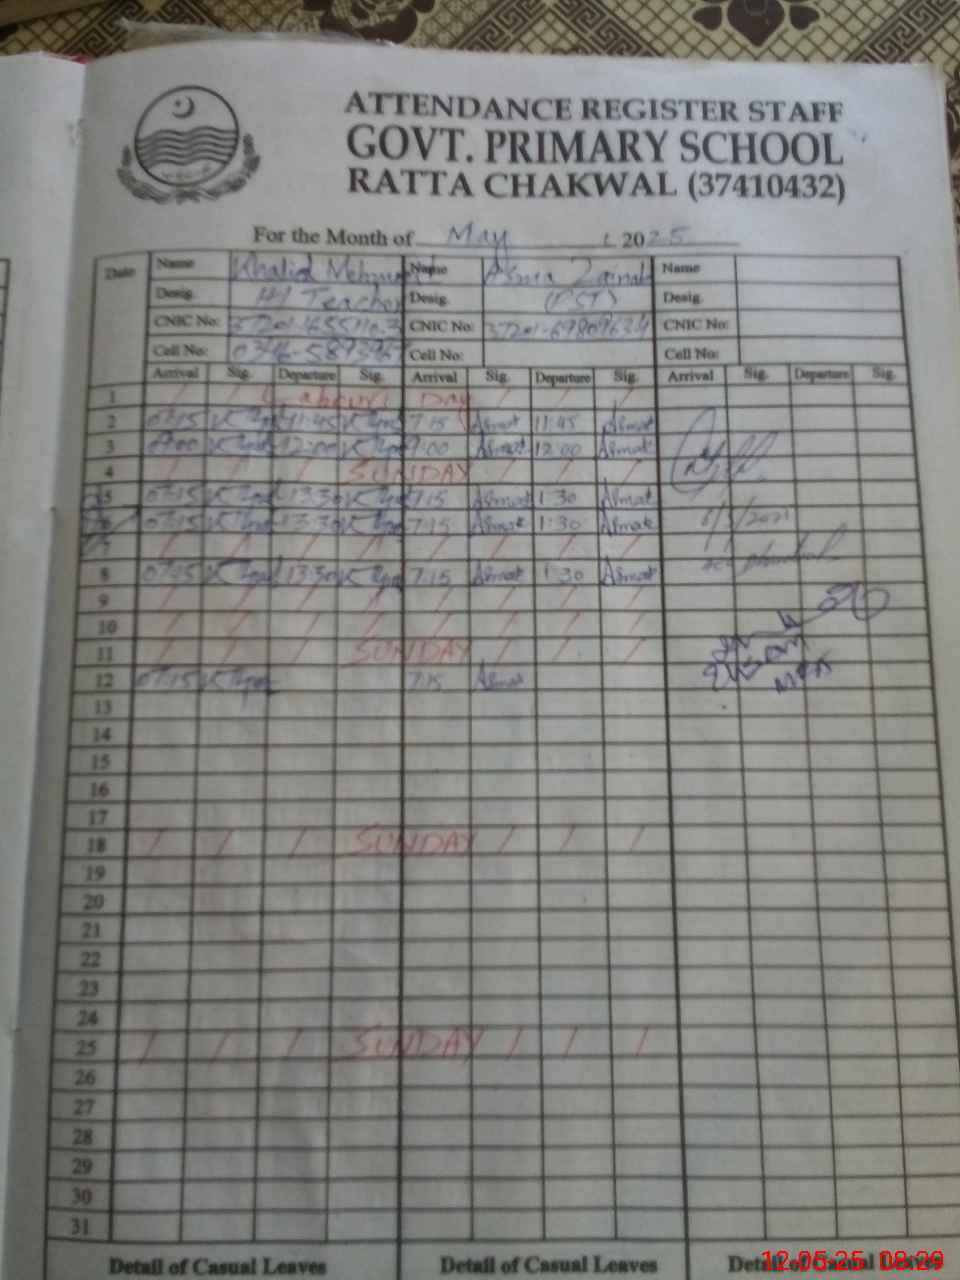 ATTENDANCE REGISTER STAFF
GOVT. PRIMARY SCHOOL
RATTA CHAKWAL (37410432)
For the Month of May 2025
Date Name Khalid Mehmood Name Asma Zainab Name
Desig. Teacher Desig. (PST) Desig.
CNIC No: CNIC No: CNIC No:
Cell No: Cell No: Cell No:
Arrival Sig. Departure Sig. Arrival Sig. Departure Sig. Arrival Sig. Departure Sig.
1 / / Labour Day / / /
2 07:15 11:45 7:15 Asmat 11:45 Asmat
3 09:00 12:00 9:00 Asmat 12:00 Asmat
4 / / / SUNDAY / / /
5 07:15 13:30 7:15 Asmat 1:30 Asmat
6 07:15 13:30 7:15 Asmat 1:30 Asmat
7 / / / / / / / /
8 07:15 13:30 7:15 Asmat 1:30 Asmat
9 / / / / / / / /
10 / / / / / / / /
11 / / / SUNDAY / / /
12 07:15 7:15 Asmat
13
14
15
16
17
18 / / / SUNDAY / / /
19
20
21
22
23
24
25 / / / SUNDAY / / /
26
27
28
29
30
31
Detail of Casual Leaves Detail of Casual Leaves Detail of Casual Leaves
12.05.25 08:29